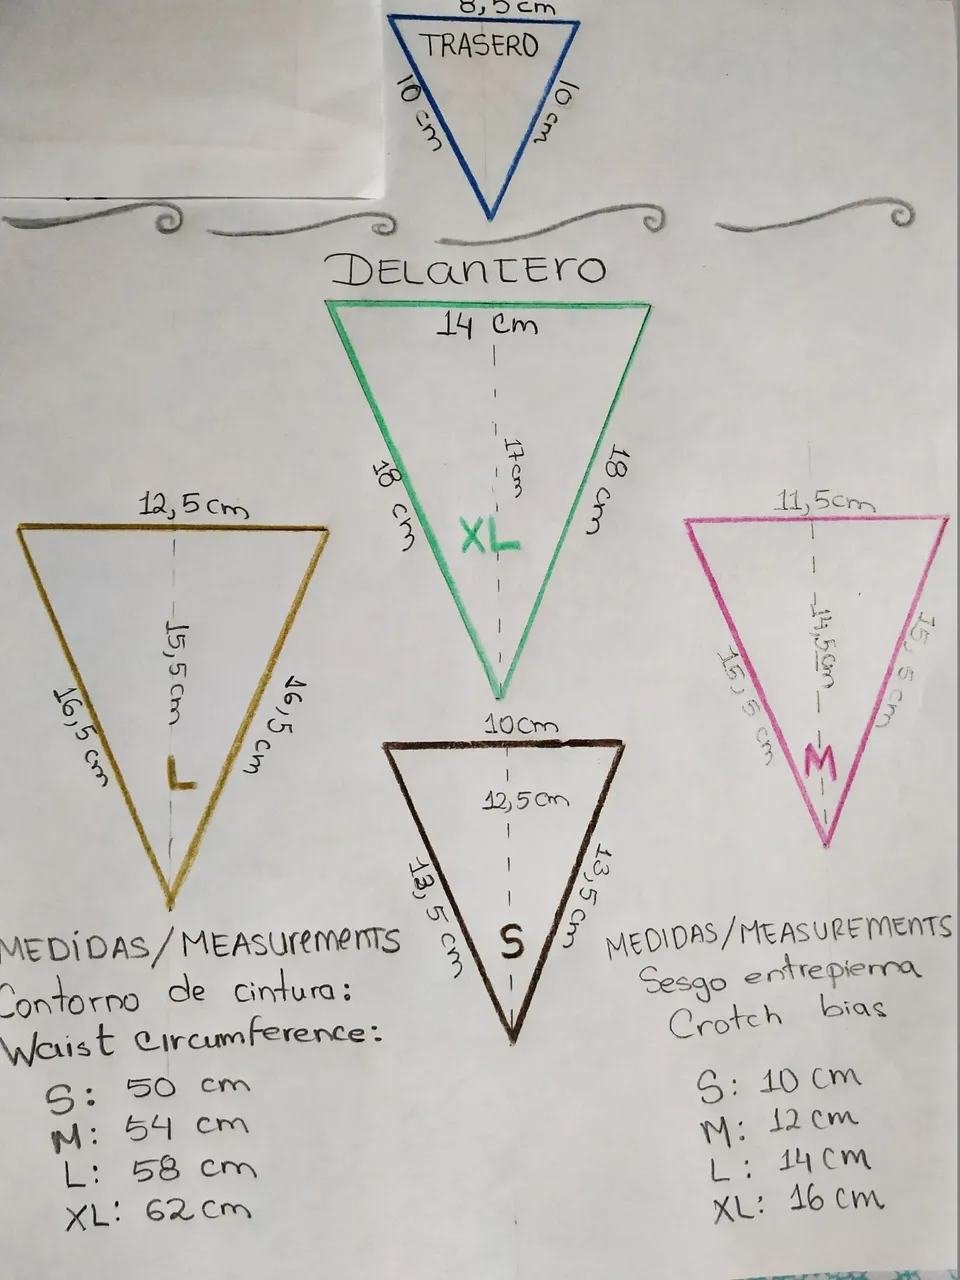 8,5cm
TRASERO
10 cm
10 cm
DELANTERO
14 cm
17cm
18 cm
18 cm
XL
12,5cm
15,5 cm
16,5 cm
16,5 cm
L
11,5cm
14,5cm
15,5 cm
15,5 cm
M
10cm
12,5cm
13,5 cm
13,5 cm
S
MEDIDAS/MEASUREMENTS
Contorno de cintura:
Waist Circumference:
S: 50 cm
M: 54 cm
L: 58 cm
XL: 62 cm
MEDIDAS/MEASUREMENTS
Sesgo entrepierna
Crotch bias
S: 10 cm
M: 12 cm
L: 14 cm
XL: 16 cm